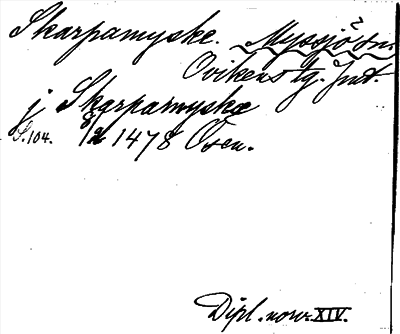 Skarpamyske. Myssjö sn
Ovikens tg. Jmt.
j Skarpamyske
S. 104. 8/2 1478 Osen.
Dipl. norv. XIV.